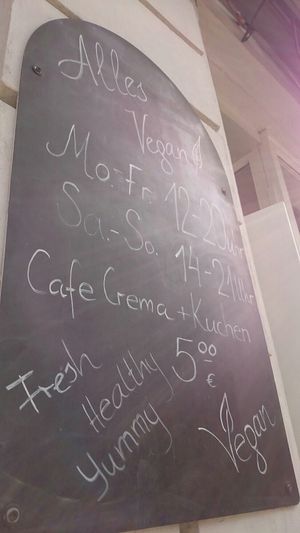 Alles
Vegan
Mo.-Fr. 12-20 Uhr
Sa.-So. 14-21 Uhr
Cafe Crema + Kuchen
5 00 €
Fresh
Healthy
Yummy
Vegan